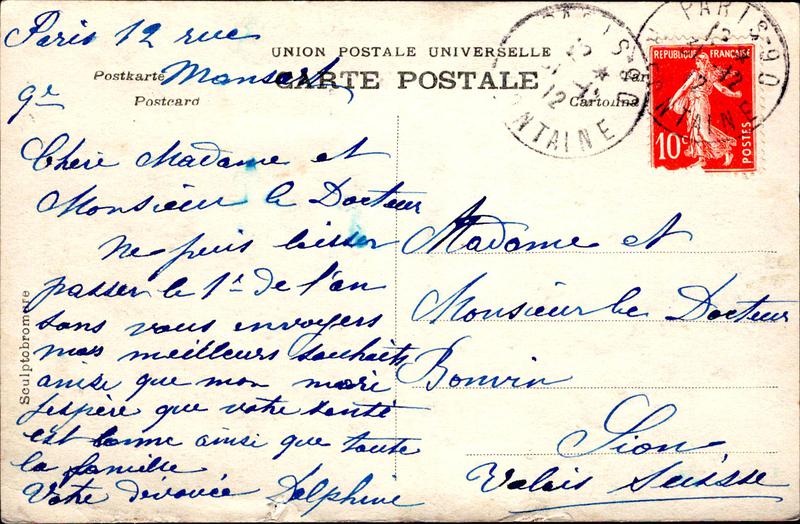 Paris 12 rue
Mansart
9e
UNION POSTALE UNIVERSELLE
Postkarte
CARTE POSTALE
Postcard
Cartolina
Sculptobromure
Chère Madame et
Monsieur le Docteur
Ne puis laisser
passer le 1r de l'an
sans vous envoyers
mes meilleurs souhaits
ainsi que mon mari
J'espère que votre santé
est bonne ainsi que toute
la famille
Votre dévouée Delphine
PARIS-90
FONTAINE
PARIS-90
FONTAINE
REPUBLIQUE FRANÇAISE
10c
POSTES
Madame et
Monsieur le Docteur
Bonvin
Sion
Valais Suisse